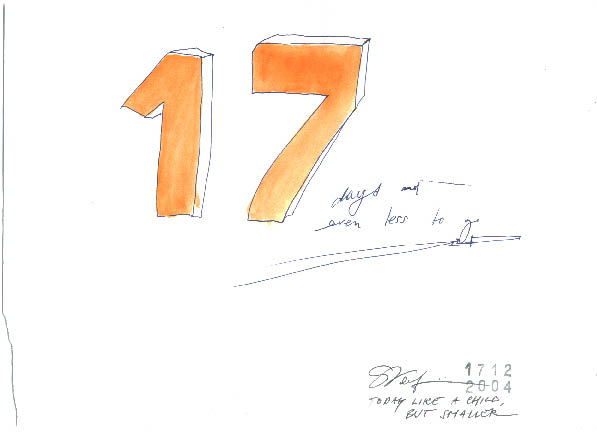 17
days and
even less to go
1712
2004
TODAY LIKE A CHILD,
BUT SMALLER